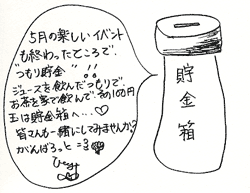 5月の楽しいイベント
も終わったところで
"つもり貯金"!!
ジュースを飲んだつもりで、
お茶を家で飲んで、あの100円
玉は貯金箱へ…♡
皆さんも一緒にしてみませんか?
がんばろっと
貯金箱